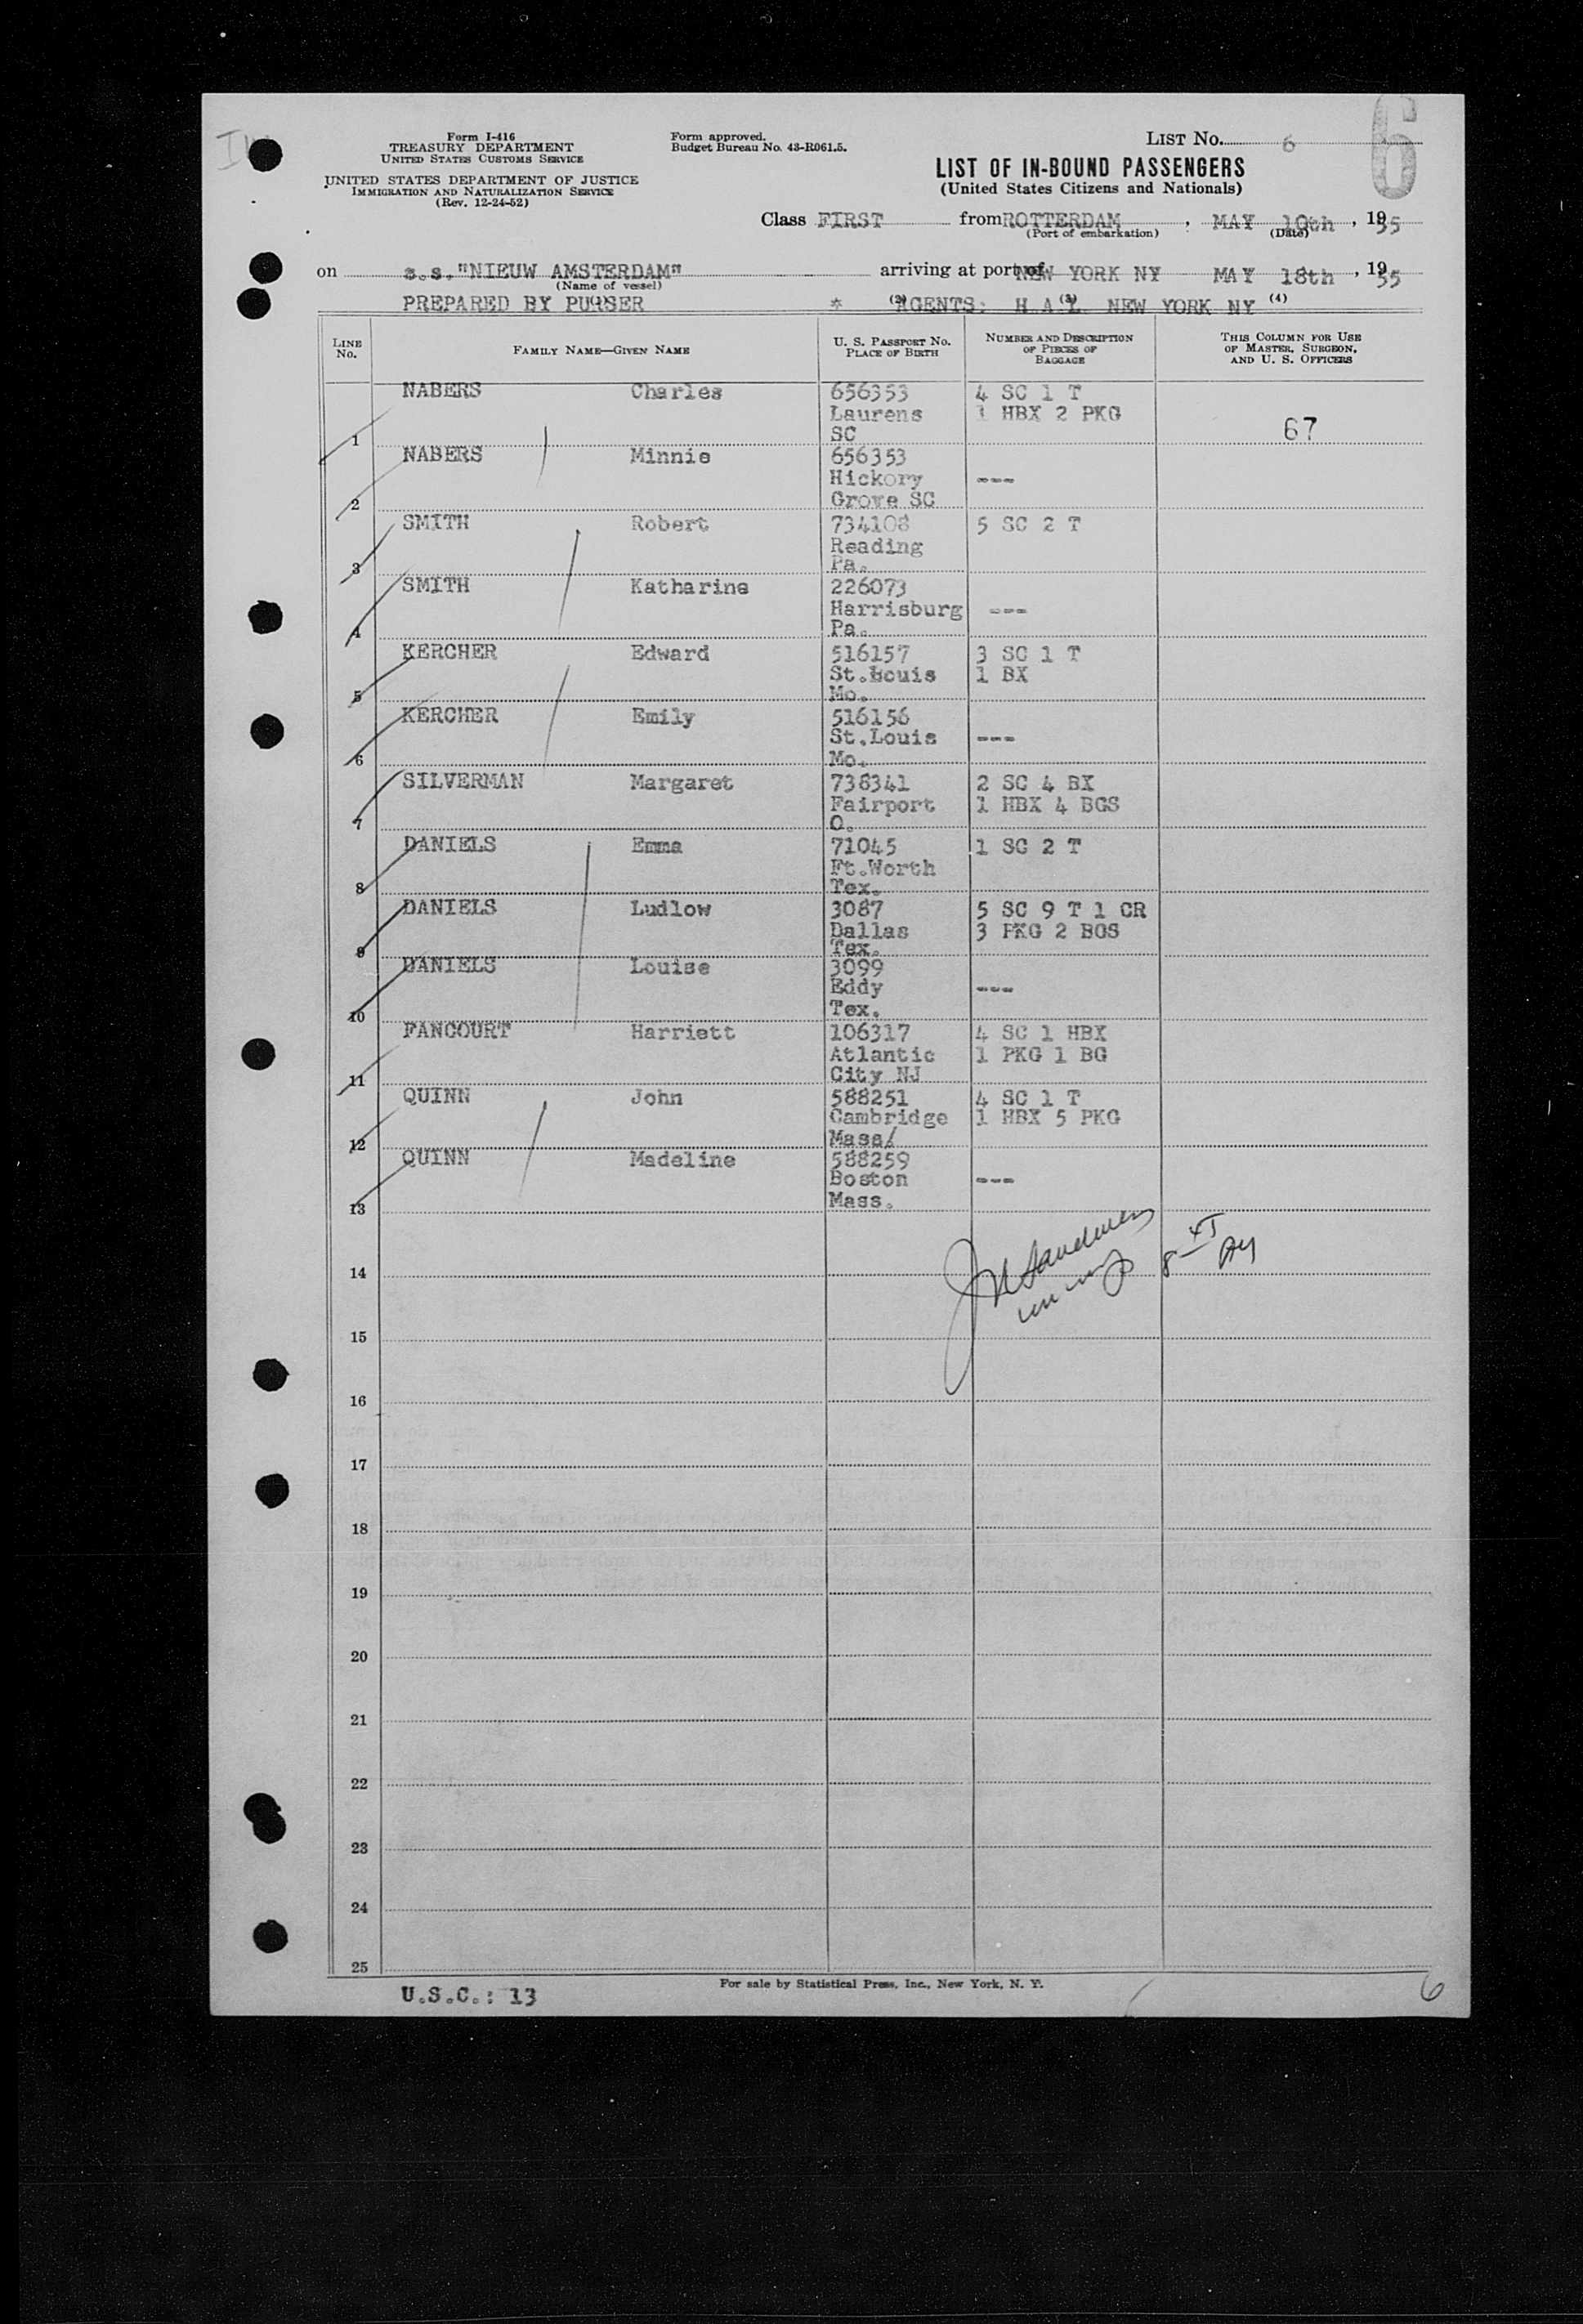 Form I-416
TREASURY DEPARTMENT
UNITED STATES CUSTOMS SERVICE
UNITED STATES DEPARTMENT OF JUSTICE
IMMIGRATION AND NATURALIZATION SERVICE
(Rev. 12-24-52)
Form approved.
Budget Bureau No. 43-R061.5.
LIST NO. 6
6
LIST OF IN-BOUND PASSENGERS
(United States Citizens and Nationals)
Class FIRST from ROTTERDAM, MAY 10th, 1955
(Port of embarkation) (Date)
on s.s. "NIEUW AMSTERDAM" arriving at port of NEW YORK NY MAY 18th, 1955
(Name of vessel)
PREPARED BY PURSER * (2) AGENTS: H A L (3) NEW YORK NY (4)
LINE No. FAMILY NAME—GIVEN NAME U. S. PASSPORT NO. PLACE OF BIRTH NUMBER AND DESCRIPTION OF PIECES OF BAGGAGE THIS COLUMN FOR USE OF MASTER, SURGEON, AND U. S. OFFICERS
NABERS Charles 656353 4 SC 1 T
Laurens 1 HBX 2 PKG
1 SC 67
NABERS Minnie 656353
Hickory ---
2 Grove SC
SMITH Robert 734108 5 SC 2 T
Reading
3 Pa.
SMITH Katharine 226073
Harrisburg ---
4 Pa.
KERCHER Edward 516157 3 SC 1 T
St.Louis 1 BX
5 Mo.
KERCHER Emily 516156
St.Louis ---
6 Mo.
SILVERMAN Margaret 738341 2 SC 4 BX
Fairport 1 HBX 4 BGS
7 O.
DANIELS Emma 71045 1 SC 2 T
Ft.Worth
8 Tex.
DANIELS Ludlow 3087 5 SC 9 T 1 CR
Dallas 3 PKG 2 BGS
9 Tex.
DANIELS Louise 3099
Eddy ---
10 Tex.
FANCOURT Harriett 106317 4 SC 1 HBX
Atlantic 1 PKG 1 BG
11 City NJ
QUINN John 588251 4 SC 1 T
Cambridge 1 HBX 5 PKG
12 Mass/
QUINN Madeline 588259
Boston ---
13 Mass.
14
15
16
17
18
19
20
21
22
23
24
25
For sale by Statistical Press, Inc., New York, N. Y.
U.S.C.: 13
6